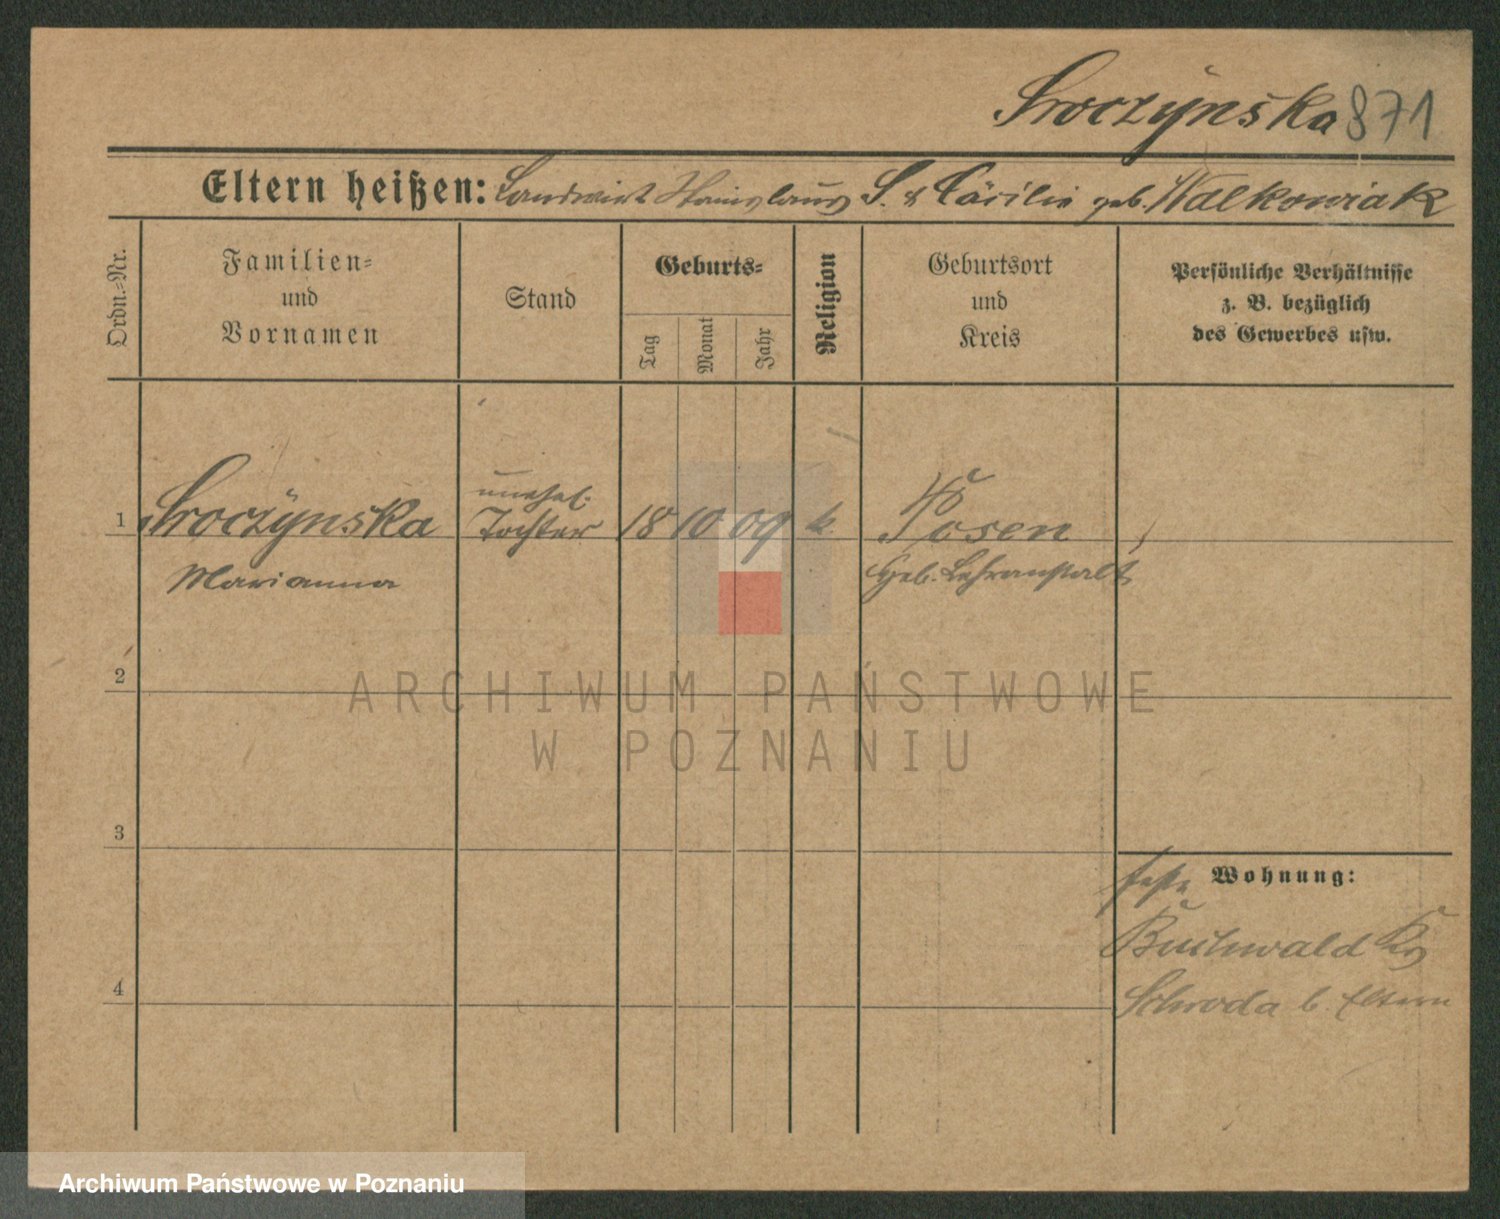 Sroczyńska 871
Eltern heißen: Landwirt Stanislaus S. & Cäcilie geb. Walkowiak
Ordn.-Nr.
Familien-
und
Vornamen
Stand
Geburts-
Tag
Monat
Jahr
Religion
Geburtsort
und
Kreis
Persönliche Verhältnisse
z. B. bezüglich
des Gewerbes usw.
unehel.
1 Sroczyńska Tochter 18 10 09 k. Posen
Marianna Geb. Lehranstalt
2
ARCHIWUM PAŃSTWOWE
W POZNANIU
3
feste Wohnung:
Buchwald Krs
4
Schroda b. Eltern
Archiwum Państwowe w Poznaniu